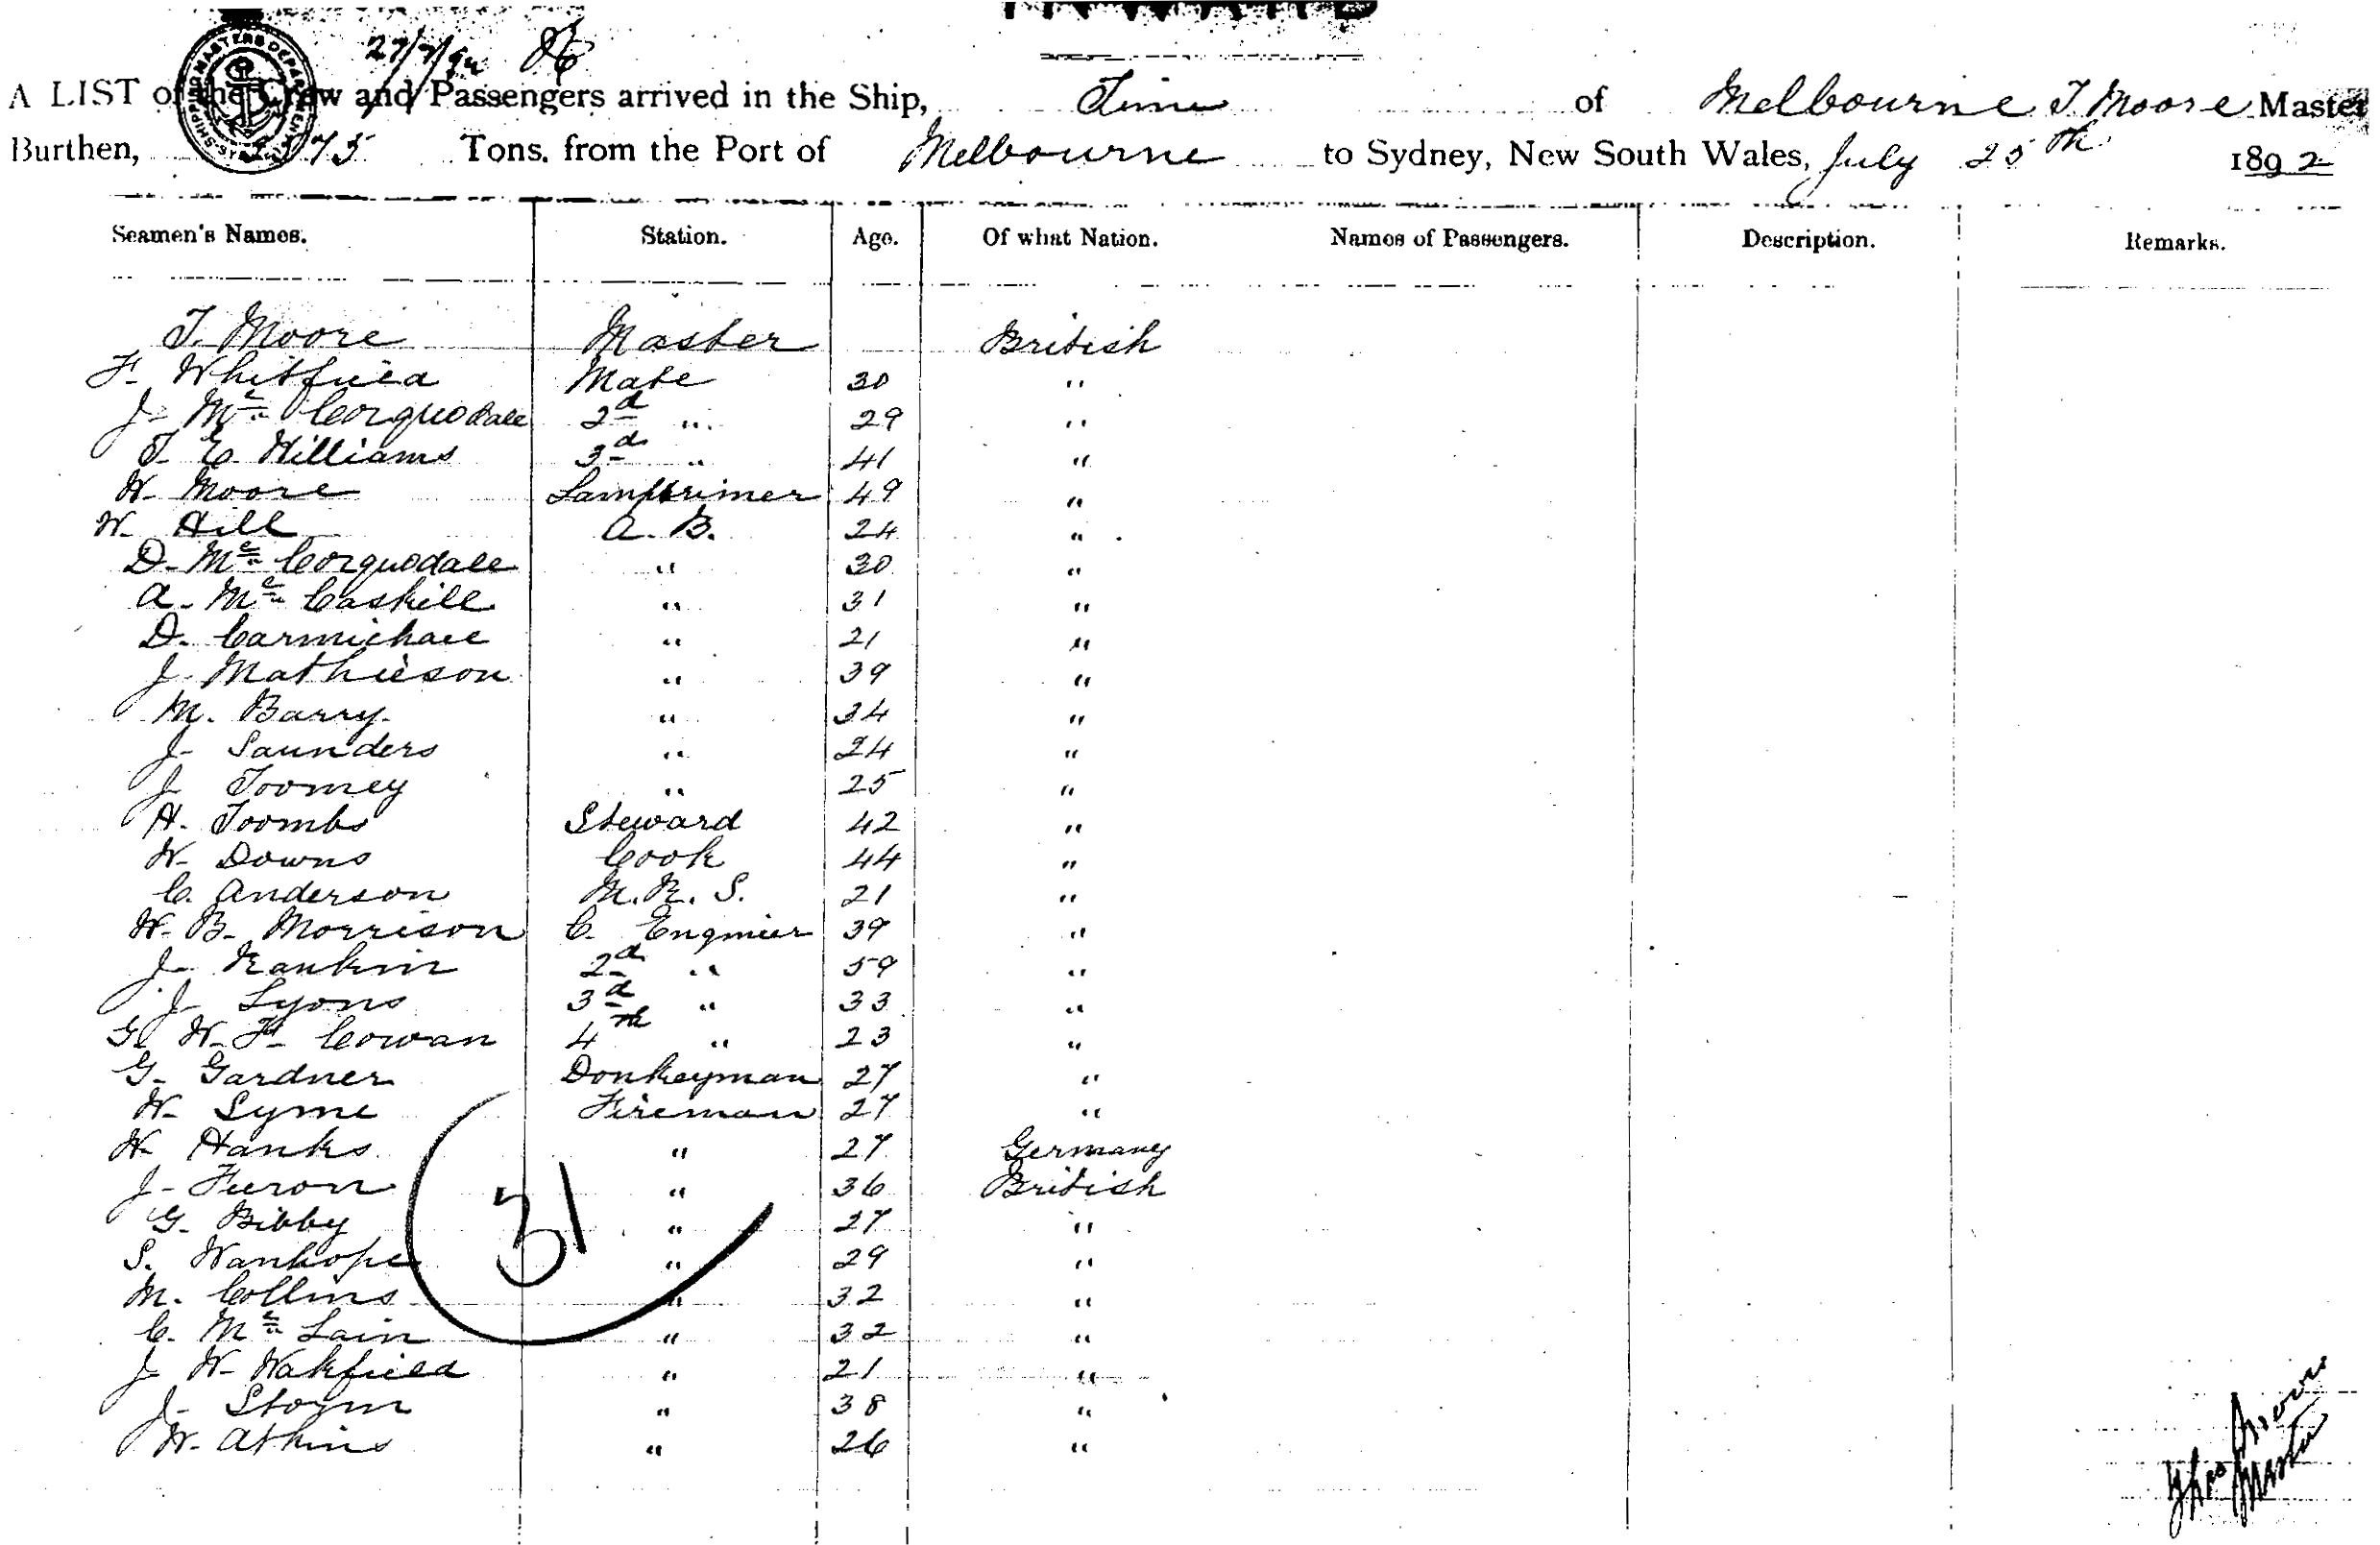 27/7/92
A LIST of the Crew and Passengers arrived in the Ship, Time of Melbourne T. Moore Master
Burthen, Tons. from the Port of Melbourne to Sydney, New South Wales, July 25th 1892
Seamen's Names. Station. Age. Of what Nation. Names of Passengers. Description. Remarks.
T. Moore Master British
F. Whitfield Mate 30 "
J. Mc Corquodale 2d " 29 "
T. E. Williams 3d " 41 "
W. Moore Lamptrimer 49 "
W. Hill A. B. 24 "
D. Mc Corquodale " 30 "
A. Mc Caskill " 31 "
D. Carmichael " 21 "
J. Mathieson " 39 "
M. Barry " 34 "
J. Saunders " 24 "
J Toomey " 25 "
H. Toombs Steward 42 "
W. Downs Cook 44 "
C. Anderson M. R. S. 21 "
W. B. Morrison C. Engineer 39 "
J. Rankin 2d " 59 "
J Lyons 3d " 33 "
G. W. F. Cowan 4th " 23 "
G. Gardner Donkeyman 27 "
W. Lyme Fireman 27 "
W. Hanks " 27 Germany
J. " 36 British
G. Bibby " 27 "
S. Wanhope " 29 "
M. Collins " 32 "
C. Mc Lain " 32 "
J W. Wakfield " 21 "
J. Storm " 38 "
W. Atkins " 26 "
31
Thos Moore
Master